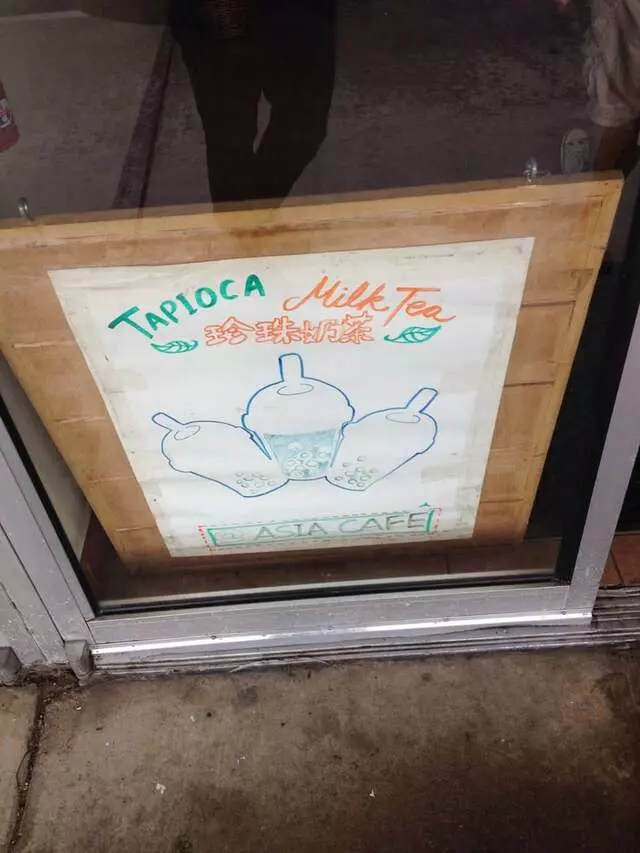 TAPIOCA Milk Tea
珍珠奶茶
@ ASIA CAFE